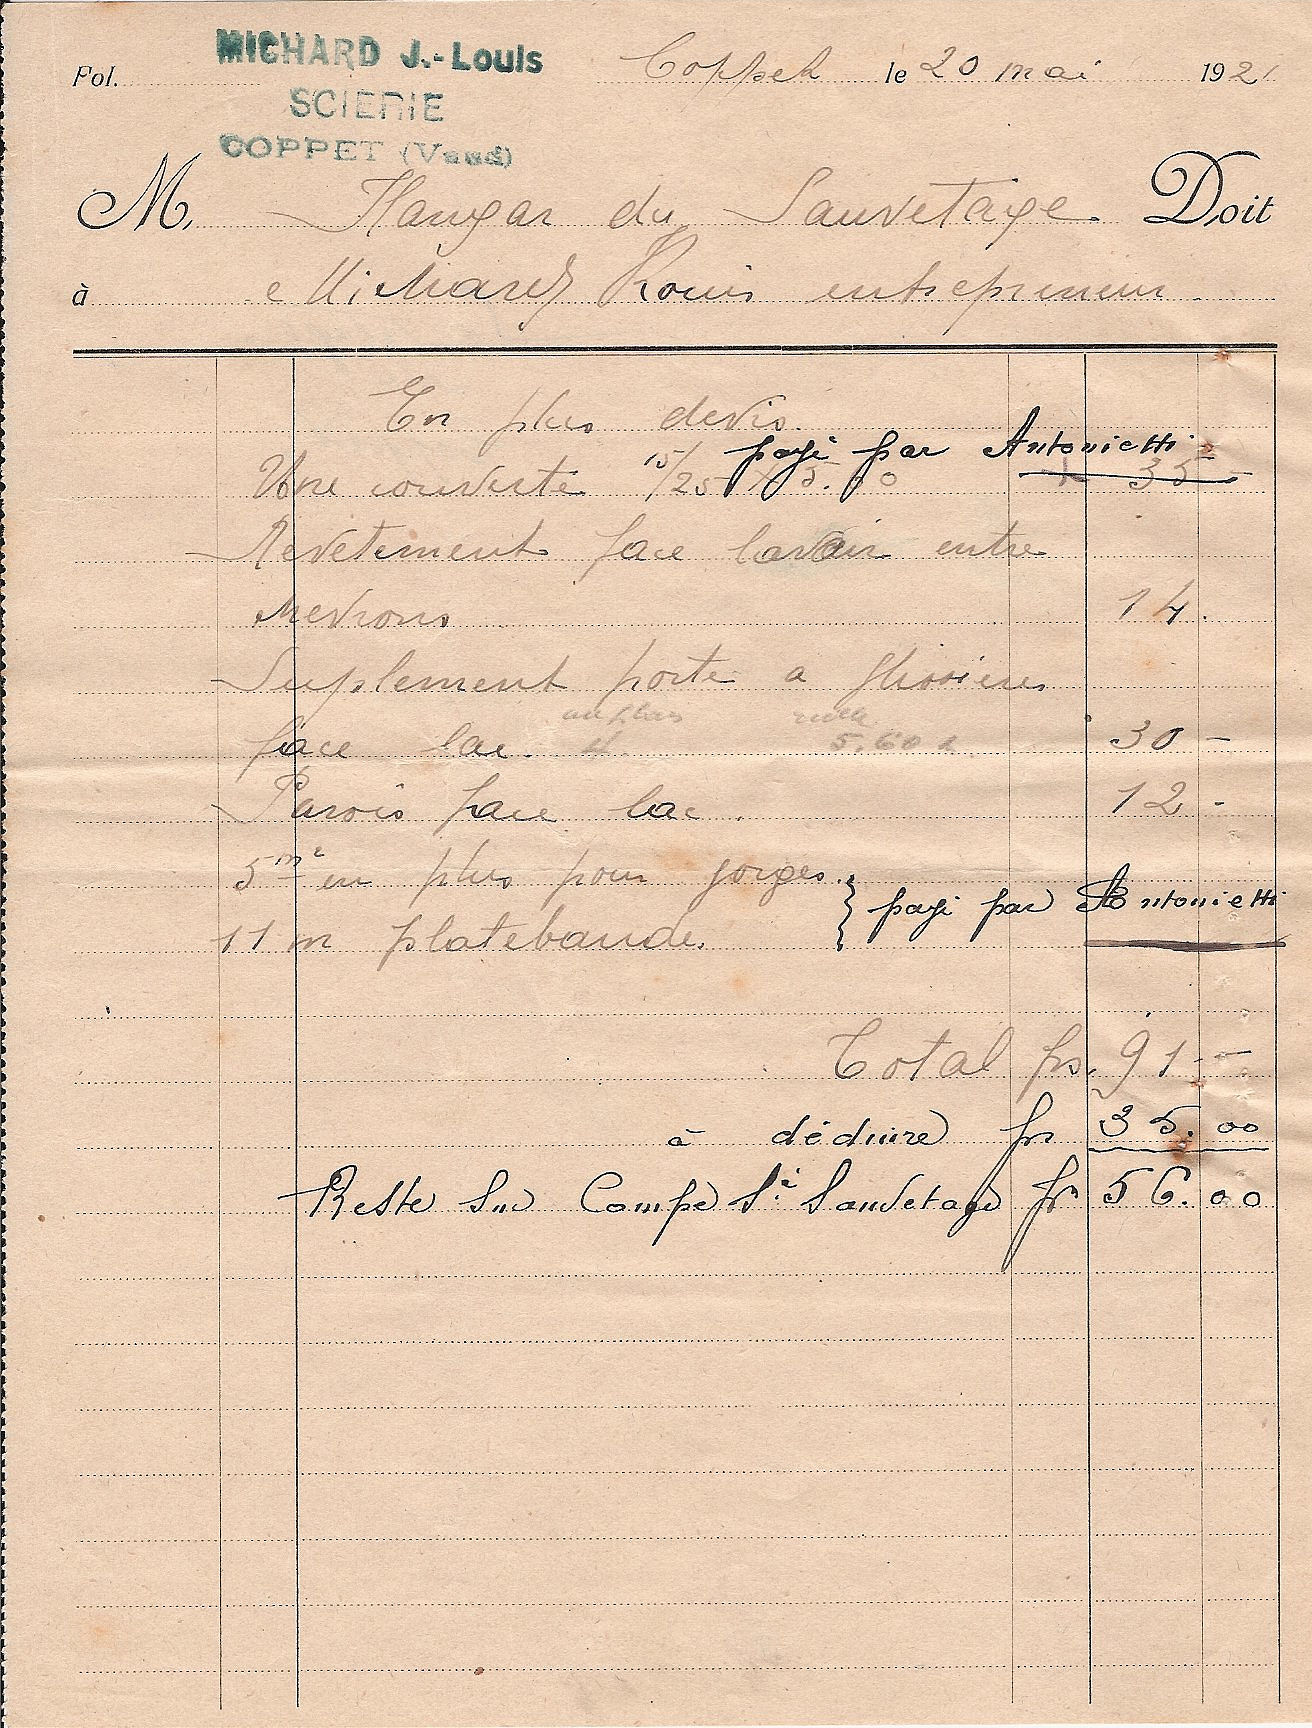 MICHARD J.-Louis
SCIERIE
COPPET (Vaud)
Fol. Coppet le 20 mai 1921
M. Hangar du Sauvetage. Doit
à Michard Louis entrepreneur
En plus devis.
payé par Antonietti
Une couverte 15/25 x 5.60 35 -
Revêtement face lavoir entre
chevrons 14.
Suplement porte a glissières
en plus
face lac. 4 5.60 30 -
Parois face lac. 12 -
5 m² en plus pour gorges.
} payé par Antonietti
11 m platebande.
Total frs. 91 -
à déduire frs 35.00
Reste sur Compe Sé Sauvetage fr 56.00